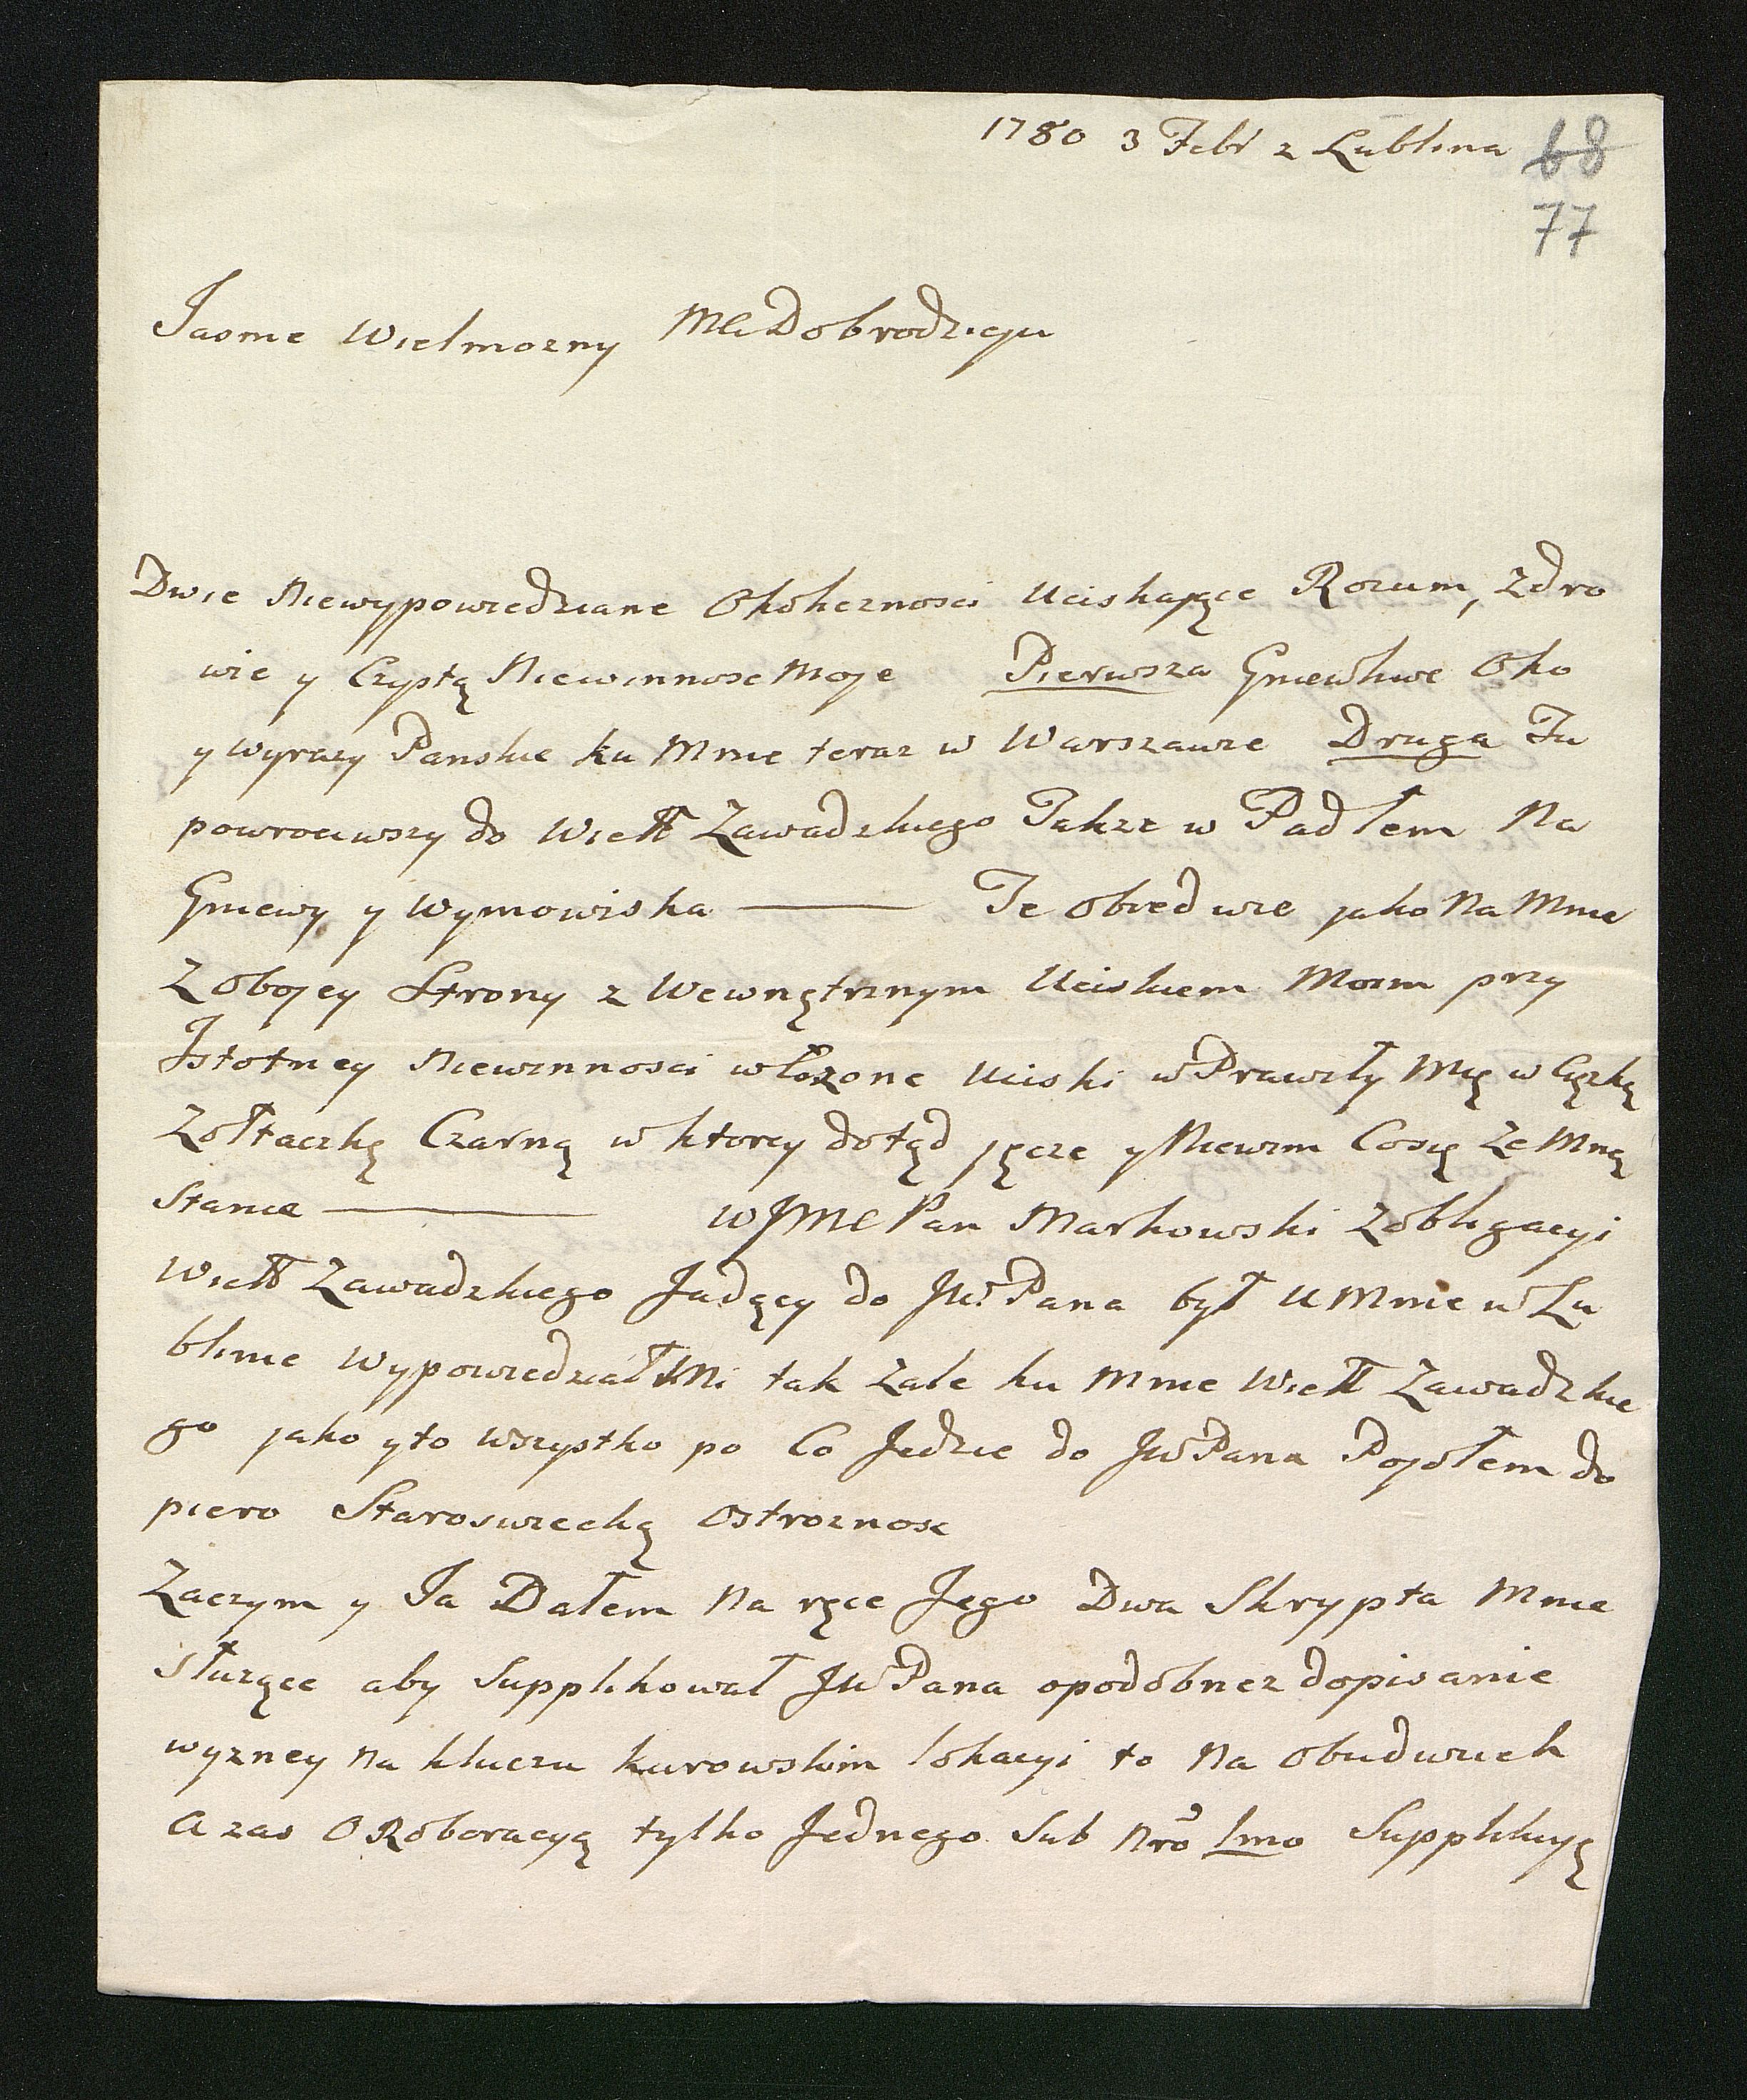 1780 3 Febr z Lublina 68
77
Jasnie Wielmozny MCi Dobrodzieju
Dwie Niewypowiedziane Okolicznosci Uciskaiące Rozum, zdro
wie y Czystą Niewinnosc Moje Pierwsza Gniewliwe Oko
y wyrazy Panskie ku Mnie teraz w Warszawie Druga Tu
powrociwszy do Wiell Zawadzkiego Takze w Padłem Na
Gniewy y Wymowiska ——— Te obiedwie jako Na Mnie
Z obojey Strony z Wewnętrznym Uciskiem Moim przy
Jstotney Niewinnosci włozone Uciski w Prawiły Mię w Cięzką
Zołtaczkę Czarną w ktorey dotąd jęcze y Niewim Cosię Ze Mną
Stanie ——— WJMC Pan Markowski Zobligacyi
Wiell Zawadzkiego Jadący do JW Pana był U Mnie w Lu
blinie Wypowiedział Mi tak Zale ku Mnie Wiell Zawadzkie
go jako y to Wszystko po Co Jedzie do JW Pana Pojołem do
piero Staroswiecką Ostroznosc
Zaczym y Ja Dałem Na ręce Jego Dwa Skrypta Mnie
słuzące aby Supplikował JW Pana opodobnez dopisanie
wyzney na kluczu kurowskim lokacyi to Na Obudwuch
A zas O Roboracyą tylko Jednego Sub Nro 1mo Supplikuję